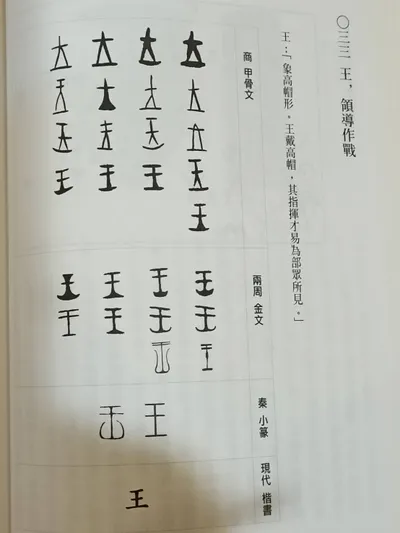 〇三三 王,領導作戰
王:「象高帽形。王戴高帽,其指揮才易為部眾所見。」
商 甲骨文
兩周 金文
秦 小篆
現代 楷書
王